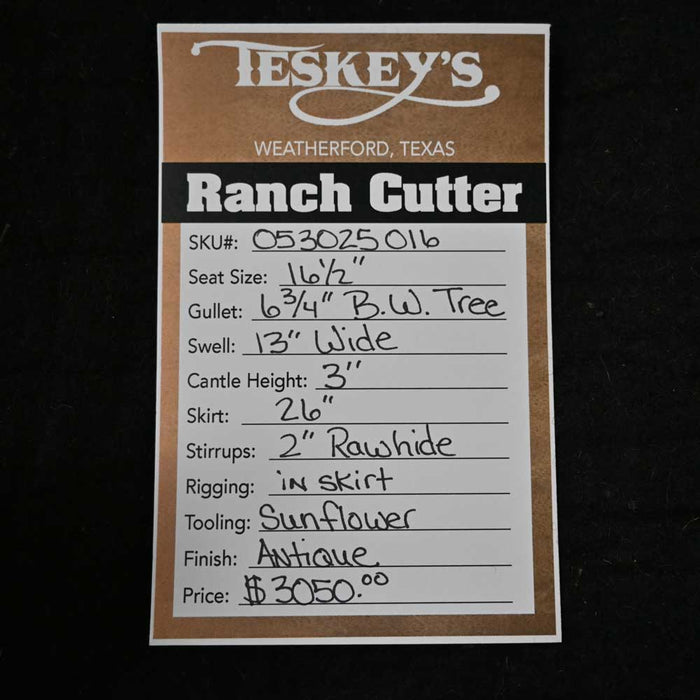 TESKEY'S
WEATHERFORD, TEXAS
Ranch Cutter
SKU#: 053025016
Seat Size: 16½"
Gullet: 6¾" B.W. Tree
Swell: 13" Wide
Cantle Height: 3"
Skirt: 26"
Stirrups: 2" Rawhide
Rigging: in skirt
Tooling: Sunflower
Finish: Antique
Price: $3050.00